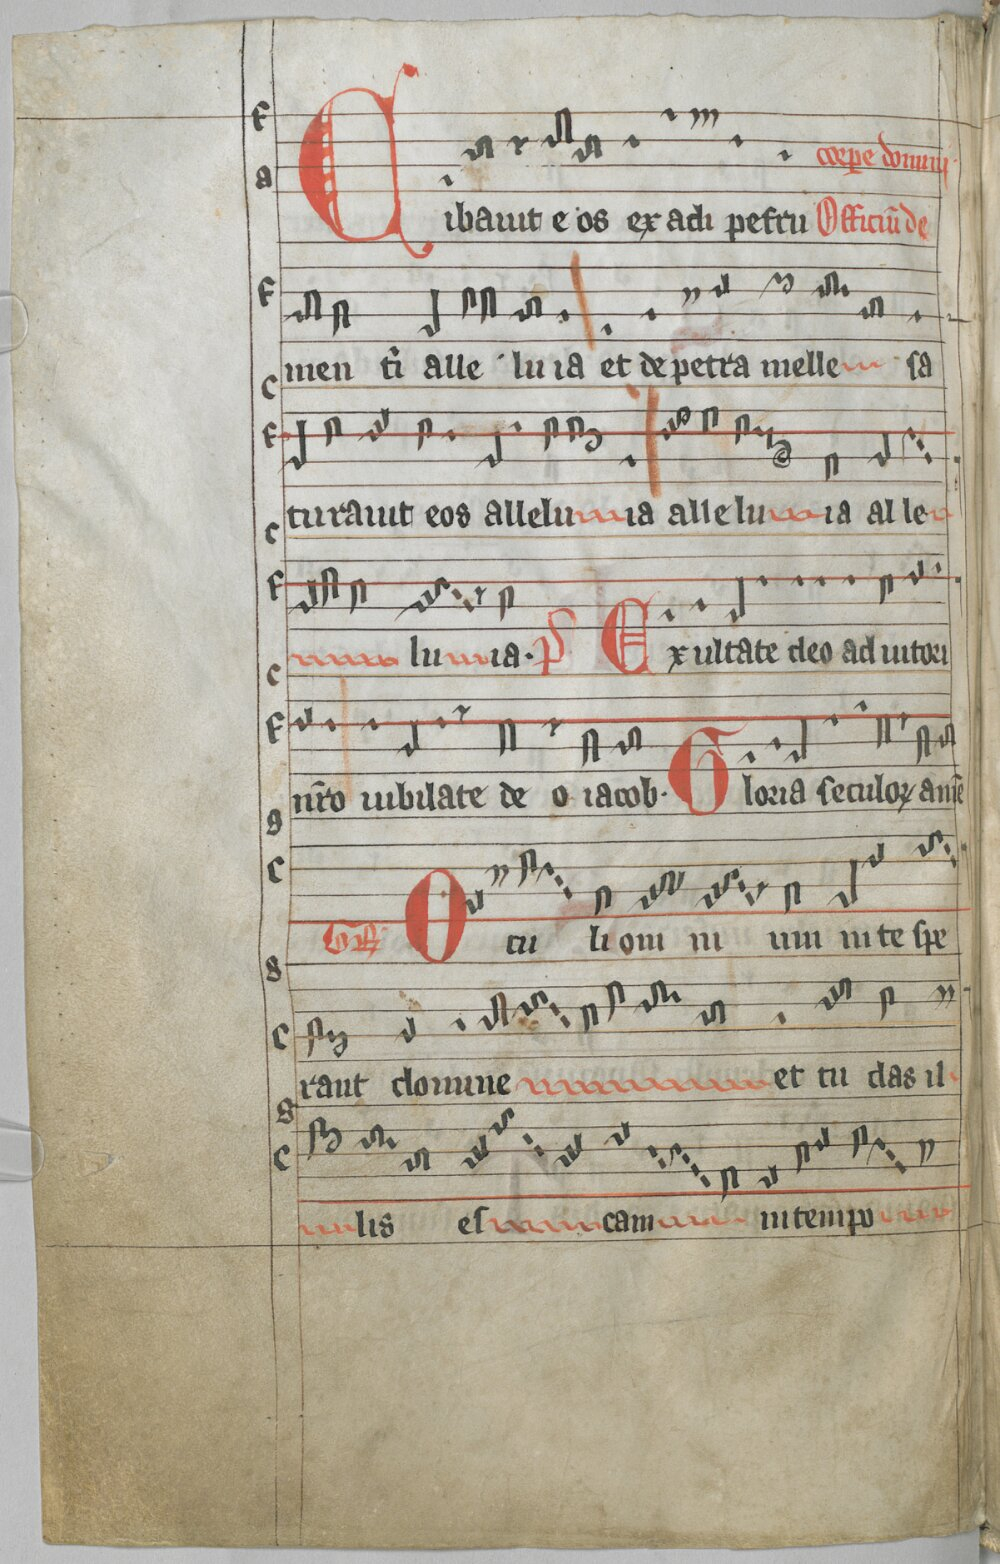 F
a
corpe domini
Cibauit e os ex adi pe fru Officiū de
F
men ti alle lu ia et de petra melle sa
c
F
turauit eos allelu ia allelu ia al le
c
F
lu ia · ps Exultate deo adiutori
c
F
nr̄o iubilate de o iacob · Gloria seculoꝝ am̄
g
c
Oculi om ni um in te spe
g
c
rant domine et tu das il
g
c
lis es cam in tempo